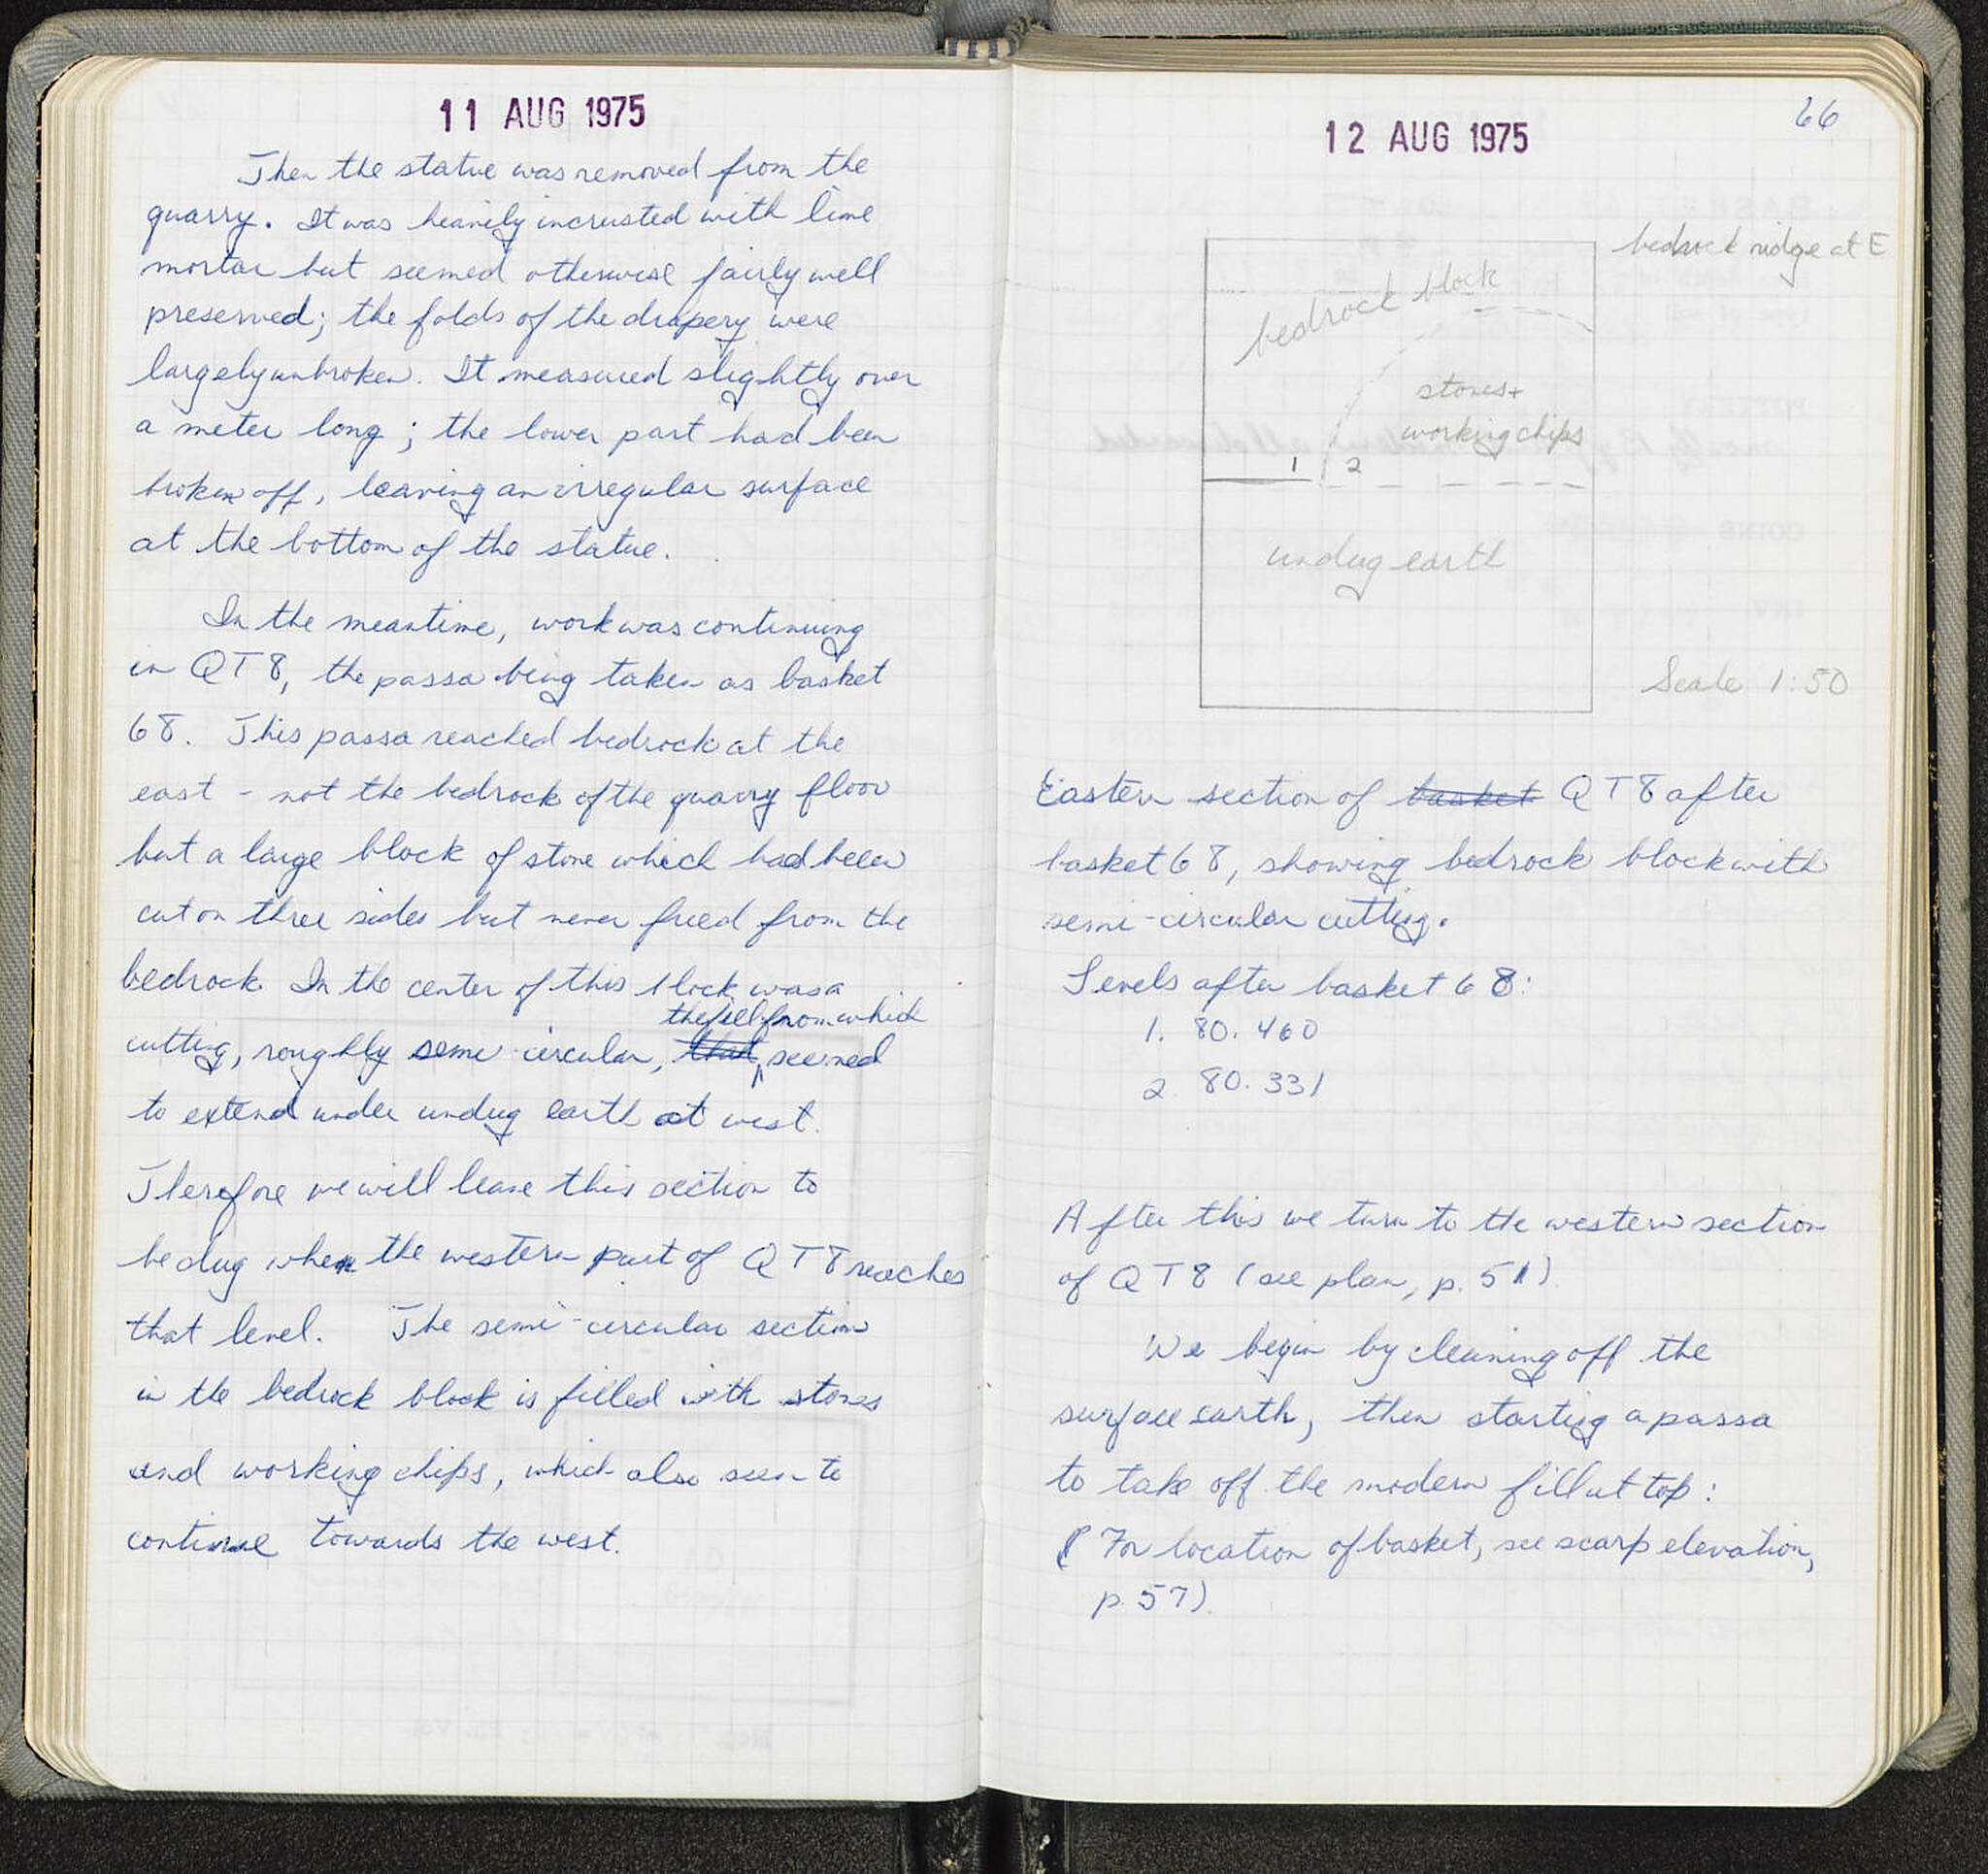 11 AUG 1975
Then the statue was removed from the
quarry. It was heavily incrusted with lime
mortar but seemed otherwise fairly well
preserved; the folds of the drapery were
largely unbroken. It measured slightly over
a meter long; the lower part had been
broken off, leaving an irregular surface
at the bottom of the statue.
In the meantime, work was continuing
in QT8, the passa being taken as basket
68. This passa reached bedrock at the
east - not the bedrock of the quarry floor
but a large block of stone which had been
cut on three sides but never freed from the
bedrock. In the center of this block was a
the fill from which
cutting, roughly semi-circular, that seemed
to extend under undug earth at west.
Therefore we will leave this section to
be dug when the western part of QT8 reaches
that level. The semi-circular section
in the bedrock block is filled with stones
and working chips, which also seem to
continue towards the west.
66
12 AUG 1975
bedrock ridge at E
bedrock block
stones +
working chips
1 2
undug earth
Scale 1:50
Eastern section of basket QT8 after
basket 68, showing bedrock block with
semi-circular cutting.
Levels after basket 68:
1. 80.460
2. 80.331
After this we turn to the western section
of QT8 (see plan, p. 51)
We begin by cleaning off the
surface earth, then starting a passa
to take off the modern fill at top:
(For location of basket, see scarp elevation,
p. 57).